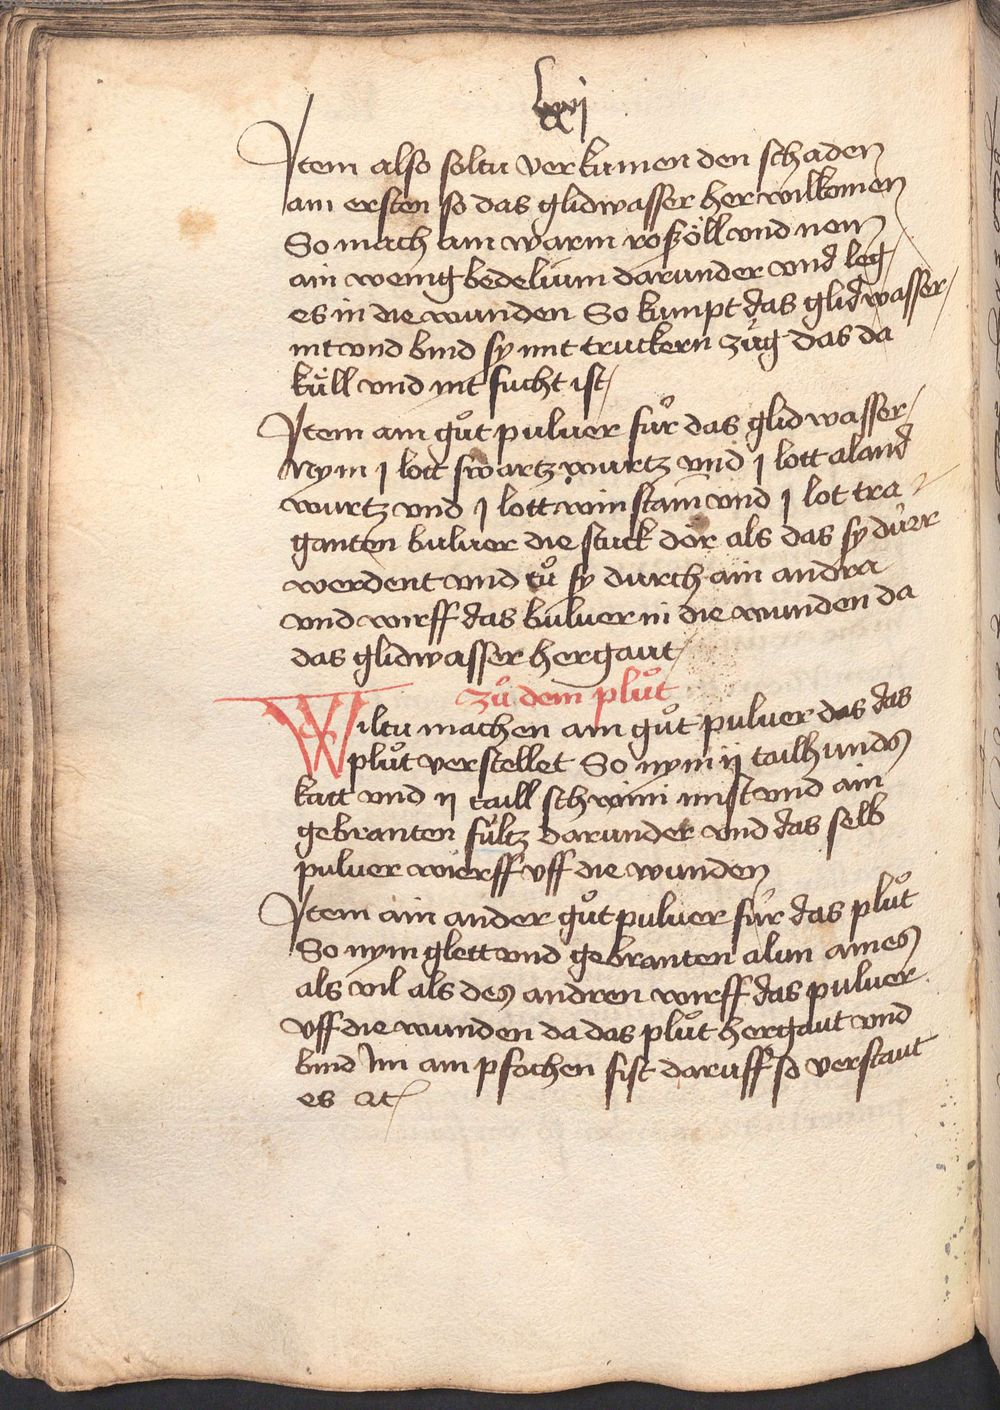 lxxvj
Item also soltu verkumen den schaden
am ersten so das glidwasser her wil komen
So mach ain warm rosßöll vnd nem
ain wenig bedelium darunder vnd leg
es in die wunden So kumpt das glidwasser
nit vnd bind sy mit truckem züg das da
küll vnd nit fücht ist
Item ain gůt puluer für das glidwasser
Nym j lott swartz wurtz vnd j lott aland
wurtz vnd j lott winstain vnd j lot tra
ganten buluer die stuck dor als das sy dürr
werdent vnd tů sy durch ain andra
vnd wirff das buluer in die wunden da
das glidwasser hergaut
zů dem plůt
Wiltu machen ain gůt puluer das das
plůt verstellet So nym ij tail hunds
katt vnd ij taill schwini mist vnd ain
gebranten fültz darunder vnd das selb
puluer wierff vff die wunden
Item ain ander gůt puluer für das plůt
So nym glett vnd gebranten alun aines
als vil als des andren wirff das puluer
vff die wunden da das plůt hergaut vnd
bind Im ain pfochen fist daruff so verstaut
es